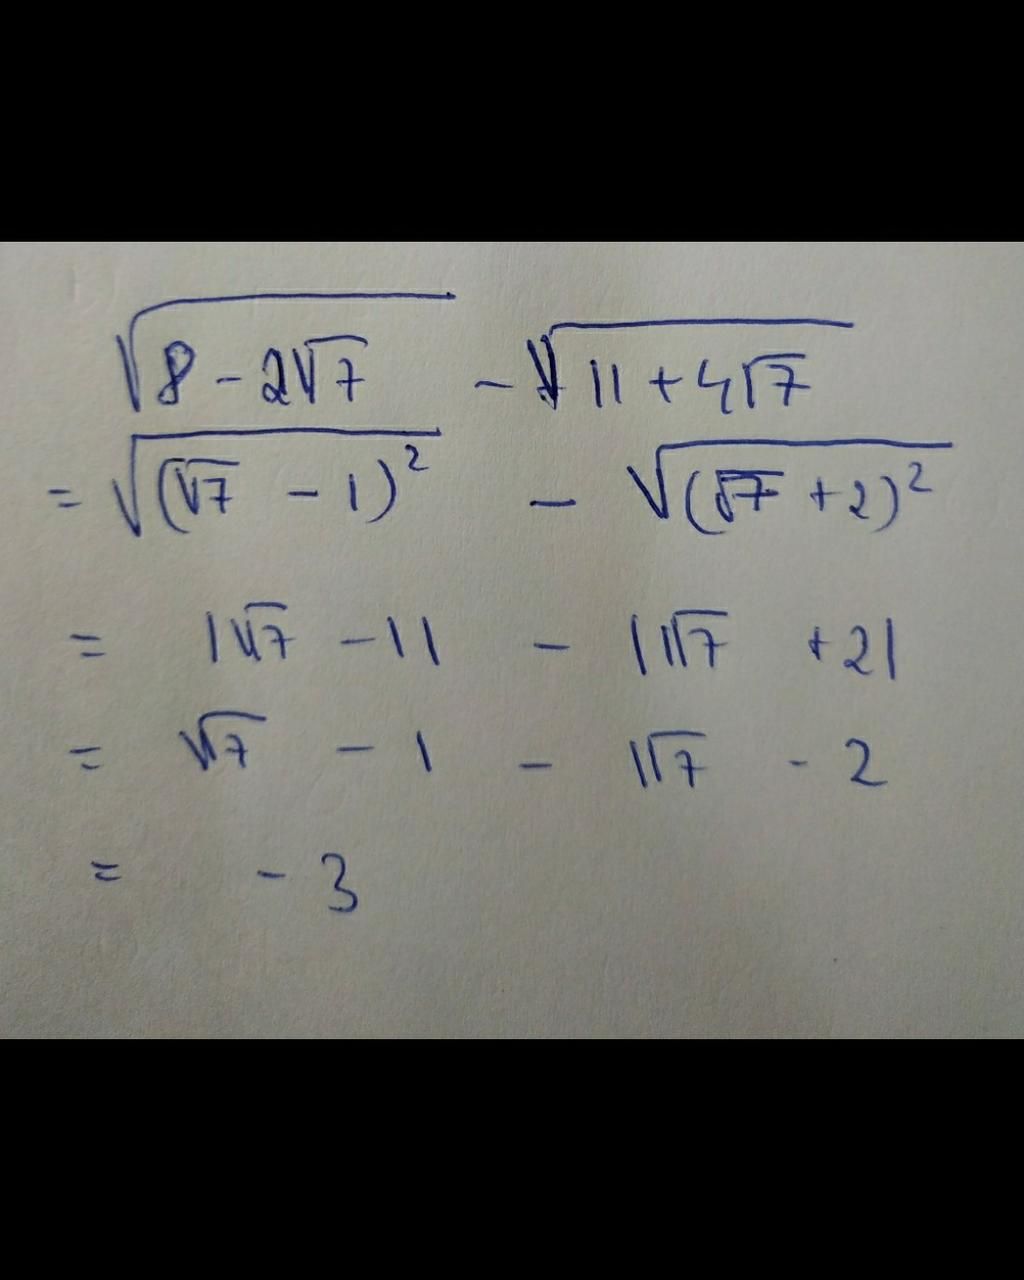 √(8 - 2√7) - √(11 + 4√7)
= √((√7 - 1)²) - √((√7 + 2)²)
= |√7 - 1| - |√7 + 2|
= √7 - 1 - √7 - 2
= - 3